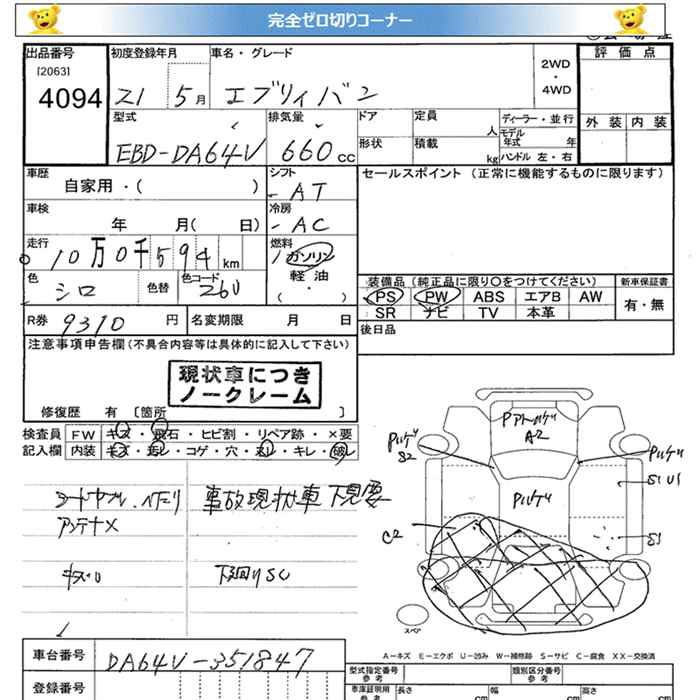 完全ゼロ切りコーナー
出品番号 初度登録年月 車名・グレード 2WD・4WD 評価点
[2063]
4094 21 5月 エブリイバン
型式 排気量 ドア 定員 人 ディーラー・並行 外装 内装
EBD-DA64V 660cc 形状 積載 kg モデル年式 年 ハンドル 左・右
車歴 シフト セールスポイント(正常に機能するものに限ります)
自家用・( ) AT
車検 冷房
年 月( 日) AC
走行 燃料
10万0千594km ガソリン
軽油
(・)
色 色替 色コード 装備品(純正品に限り○をつけてください) 新車保証書
シロ 26U PS PW ABS エアB AW 有・無
R券 9310円 名変期限 月 日 SR ナビ TV 本革
後日品
注意事項申告欄(不具合内容等は具体的に記入して下さい)
現状車につき
ノークレーム
修復歴 有 [箇所 ]
検査員 FW キズ・飛石・ヒビ割・リペア跡・×要
記入欄 内装 キズ・汚レ・コゲ・穴・スレ・キレ・破レ
事故現状車 下見要
アンテナX
キズU 下廻りSC
Pアトハゲ
A2
Pハゲ
S2
Pハゲ
Pハゲ
S1U1
C2
S1
スペア
A-キズ E-エクボ U-凹み W-補修跡 S-サビ C-腐食 XX-交換済
車台番号 DA64V-351847
登録番号
型式指定番号 参考 類別区分番号 参考
車庫証明用 参考 長さ cm 幅 cm 高さ cm